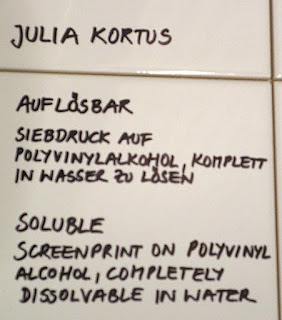 JULIA KORTUS
AUFLÖSBAR
SIEBDRUCK AUF
POLYVINYLALKOHOL, KOMPLETT
IN WASSER ZU LÖSEN
SOLUBLE
SCREENPRINT ON POLYVINYL
ALCOHOL, COMPLETELY
DISSOLVABLE IN WATER